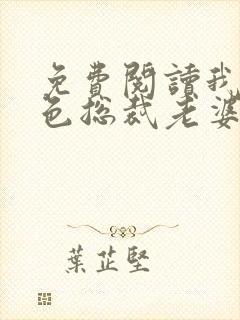 免費閱讀我
色總裁老婆
葉芷堅